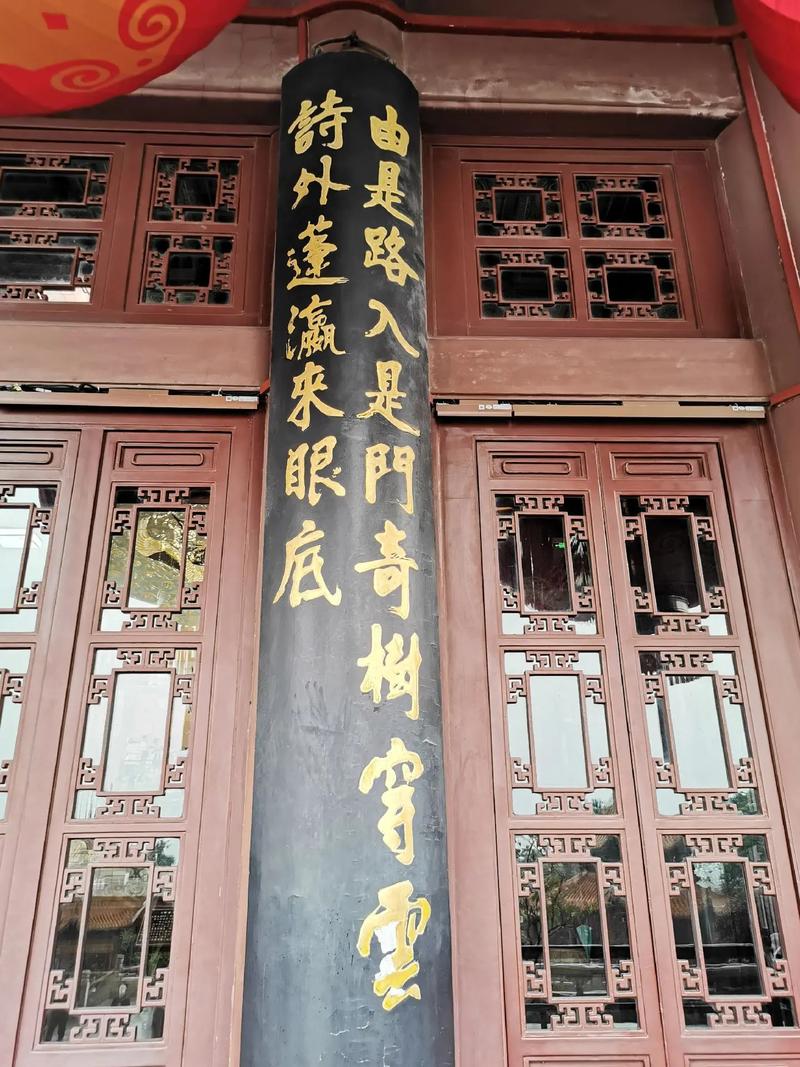 由是路入是門奇樹穿雲
詩外蓬瀛來眼底